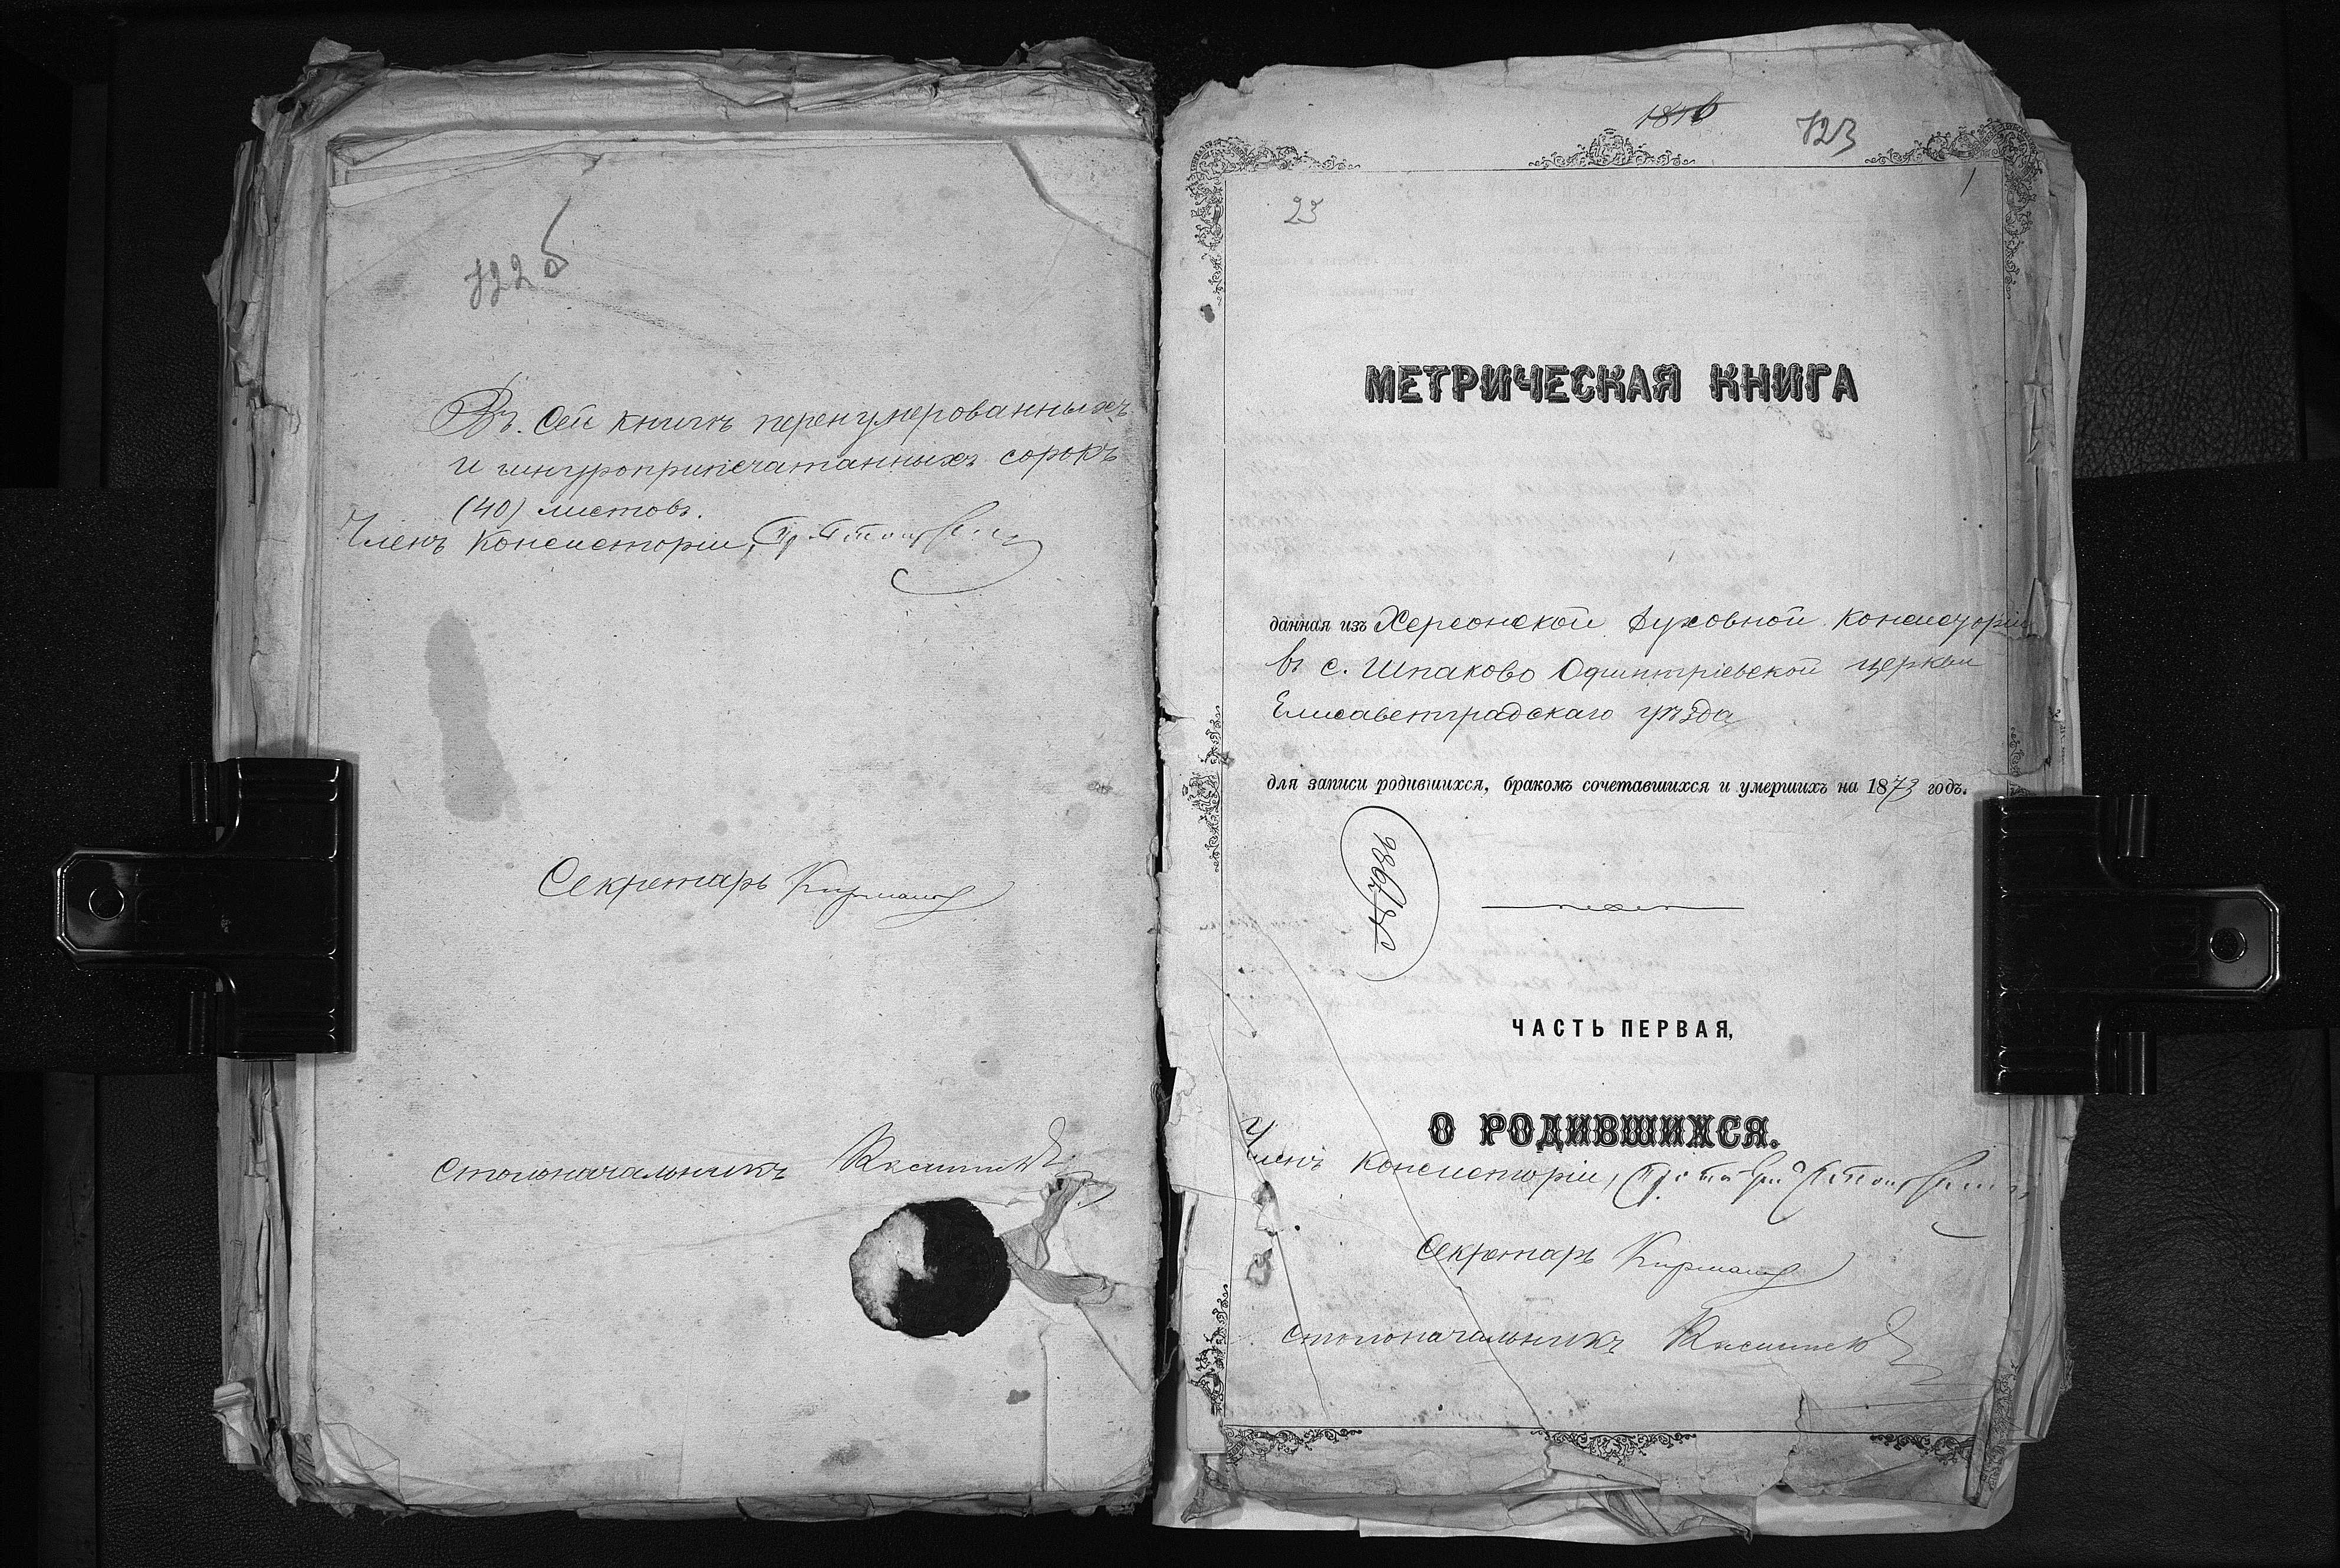 722 б
Въ сей книгѣ перенумерованныхъ
и шнуроприпечатанныхъ сорокъ
(40) листовъ.
Членъ Консисторіи,
Секретарь
Столоначальникъ
723
23
1
МЕТРИЧЕСКАЯ КНИГА
данная изъ Херсонской Духовной Консисторіи
въ с. Шпаково Одигитріевской церкви
Елисаветградскаго уѣзда
для записи родившихся, бракомъ сочетавшихся и умершихъ на 1873 годъ.
№ 7986
ЧАСТЬ ПЕРВАЯ,
О РОДИВШИХСЯ.
Членъ Консисторіи,
Секретарь
Столоначальникъ